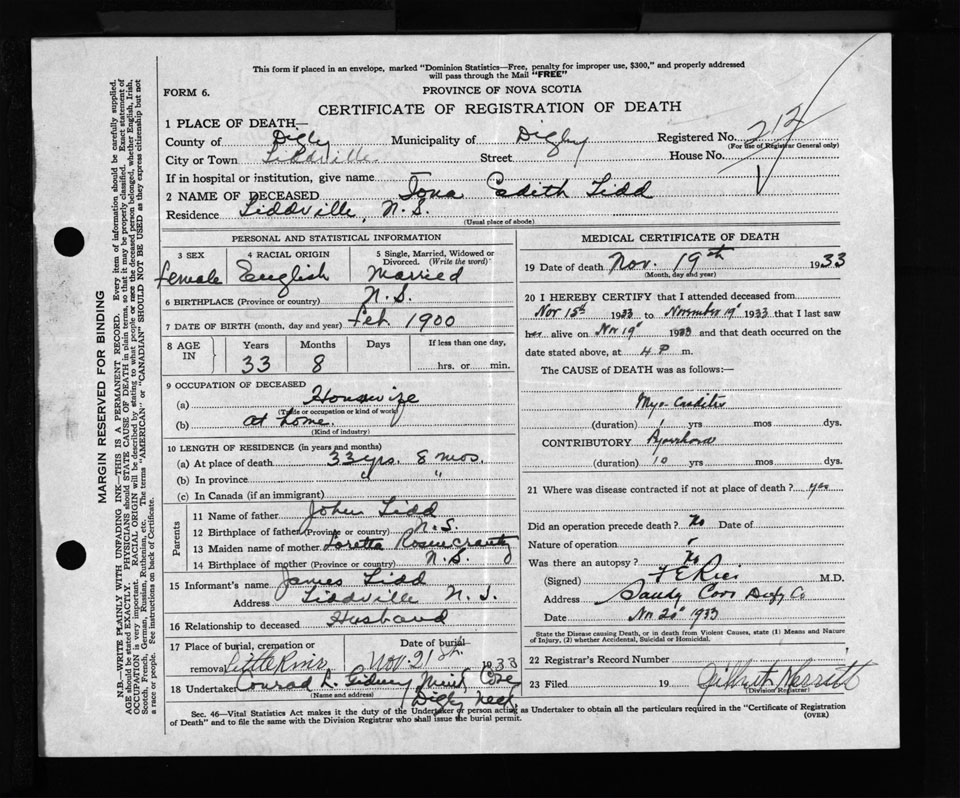 This form if placed in an envelope, marked "Dominion Statistics—Free, penalty for improper use, $300," and properly addressed
will pass through the Mail "FREE"
FORM 6.
PROVINCE OF NOVA SCOTIA
CERTIFICATE OF REGISTRATION OF DEATH
1 PLACE OF DEATH—
County of Digby Municipality of Digby Registered No. 212
(For use of Registrar General only)
City or Town Tiddville Street House No.
If in hospital or institution, give name
2 NAME OF DECEASED Iona Cadith Tidd
Residence Tiddville, N.S.
(Usual place of abode)
PERSONAL AND STATISTICAL INFORMATION
3 SEX 4 RACIAL ORIGIN 5 Single, Married, Widowed or
Divorced. (Write the word)
female English Married
6 BIRTHPLACE (Province or country) N.S.
7 DATE OF BIRTH (month, day and year) Feb 1900
8 AGE IN Years Months Days If less than one day,
33 8 hrs. or min.
9 OCCUPATION OF DECEASED
(a) Housewife
(Trade or occupation or kind of work)
(b) at home.
(Kind of industry)
10 LENGTH OF RESIDENCE (in years and months)
(a) At place of death 33 yrs. 8 mos.
(b) In province " "
(c) In Canada (if an immigrant)
Parents
11 Name of father John Tidd
12 Birthplace of father (Province or country) N.S.
13 Maiden name of mother Loretta Rosencrantz
14 Birthplace of mother (Province or country) N.S.
15 Informant's name James Tidd
Address Tiddville N.S.
16 Relationship to deceased Husband
17 Place of burial, cremation or Date of burial
removal Little River Nov. 21st 1933
18 Undertaker Conrad L. Gidney Mink Cove
(Name and address) Digby Neck
MEDICAL CERTIFICATE OF DEATH
19 Date of death Nov. 19th 1933
(Month, day and year)
20 I HEREBY CERTIFY that I attended deceased from
Nov 15th 1933 to November 19" 1933 that I last saw
her alive on Nov 19" 1933 and that death occurred on
date stated above, at 4 P m.
The CAUSE of DEATH was as follows:—
Myo-Carditis
(duration) 1 yrs mos dys.
CONTRIBUTORY Pyorrhoea
(duration) 10 yrs mos dys.
21 Where was disease contracted if not at place of death? yes
Did an operation precede death? No Date of
Nature of operation
Was there an autopsy? No
(Signed) F E Rice M.D.
Address Sandy Cove Digby Co
Date Nov 20" 1933
State the Disease causing Death, or in death from Violent Causes, state (1) Means and Nature
of Injury, (2) whether Accidental, Suicidal or Homicidal.
22 Registrar's Record Number
23 Filed 19 Gilbert Merritt
(Division Registrar)
Sec. 46—Vital Statistics Act makes it the duty of the Undertaker or person acting as Undertaker to obtain all the particulars required in the "Certificate of Registration
of Death" and to file the same with the Division Registrar who shall issue the burial permit.
(OVER)
MARGIN RESERVED FOR BINDING
N.B.—WRITE PLAINLY WITH UNFADING INK—THIS IS A PERMANENT RECORD. Every item of information should be carefully supplied.
AGE should be stated EXACTLY. PHYSICIANS should STATE CAUSE OF DEATH in plain terms, so that it may be properly classified. Exact statement of
OCCUPATION is very important. RACIAL ORIGIN will be described by stating to what people or race the deceased person belonged, whether English, Irish,
Scotch, French, German, Russian, Ruthenian, etc. The terms "AMERICAN" or "CANADIAN" SHOULD NOT BE USED as they express citizenship but not
a race or people. See instructions on back of Certificate.